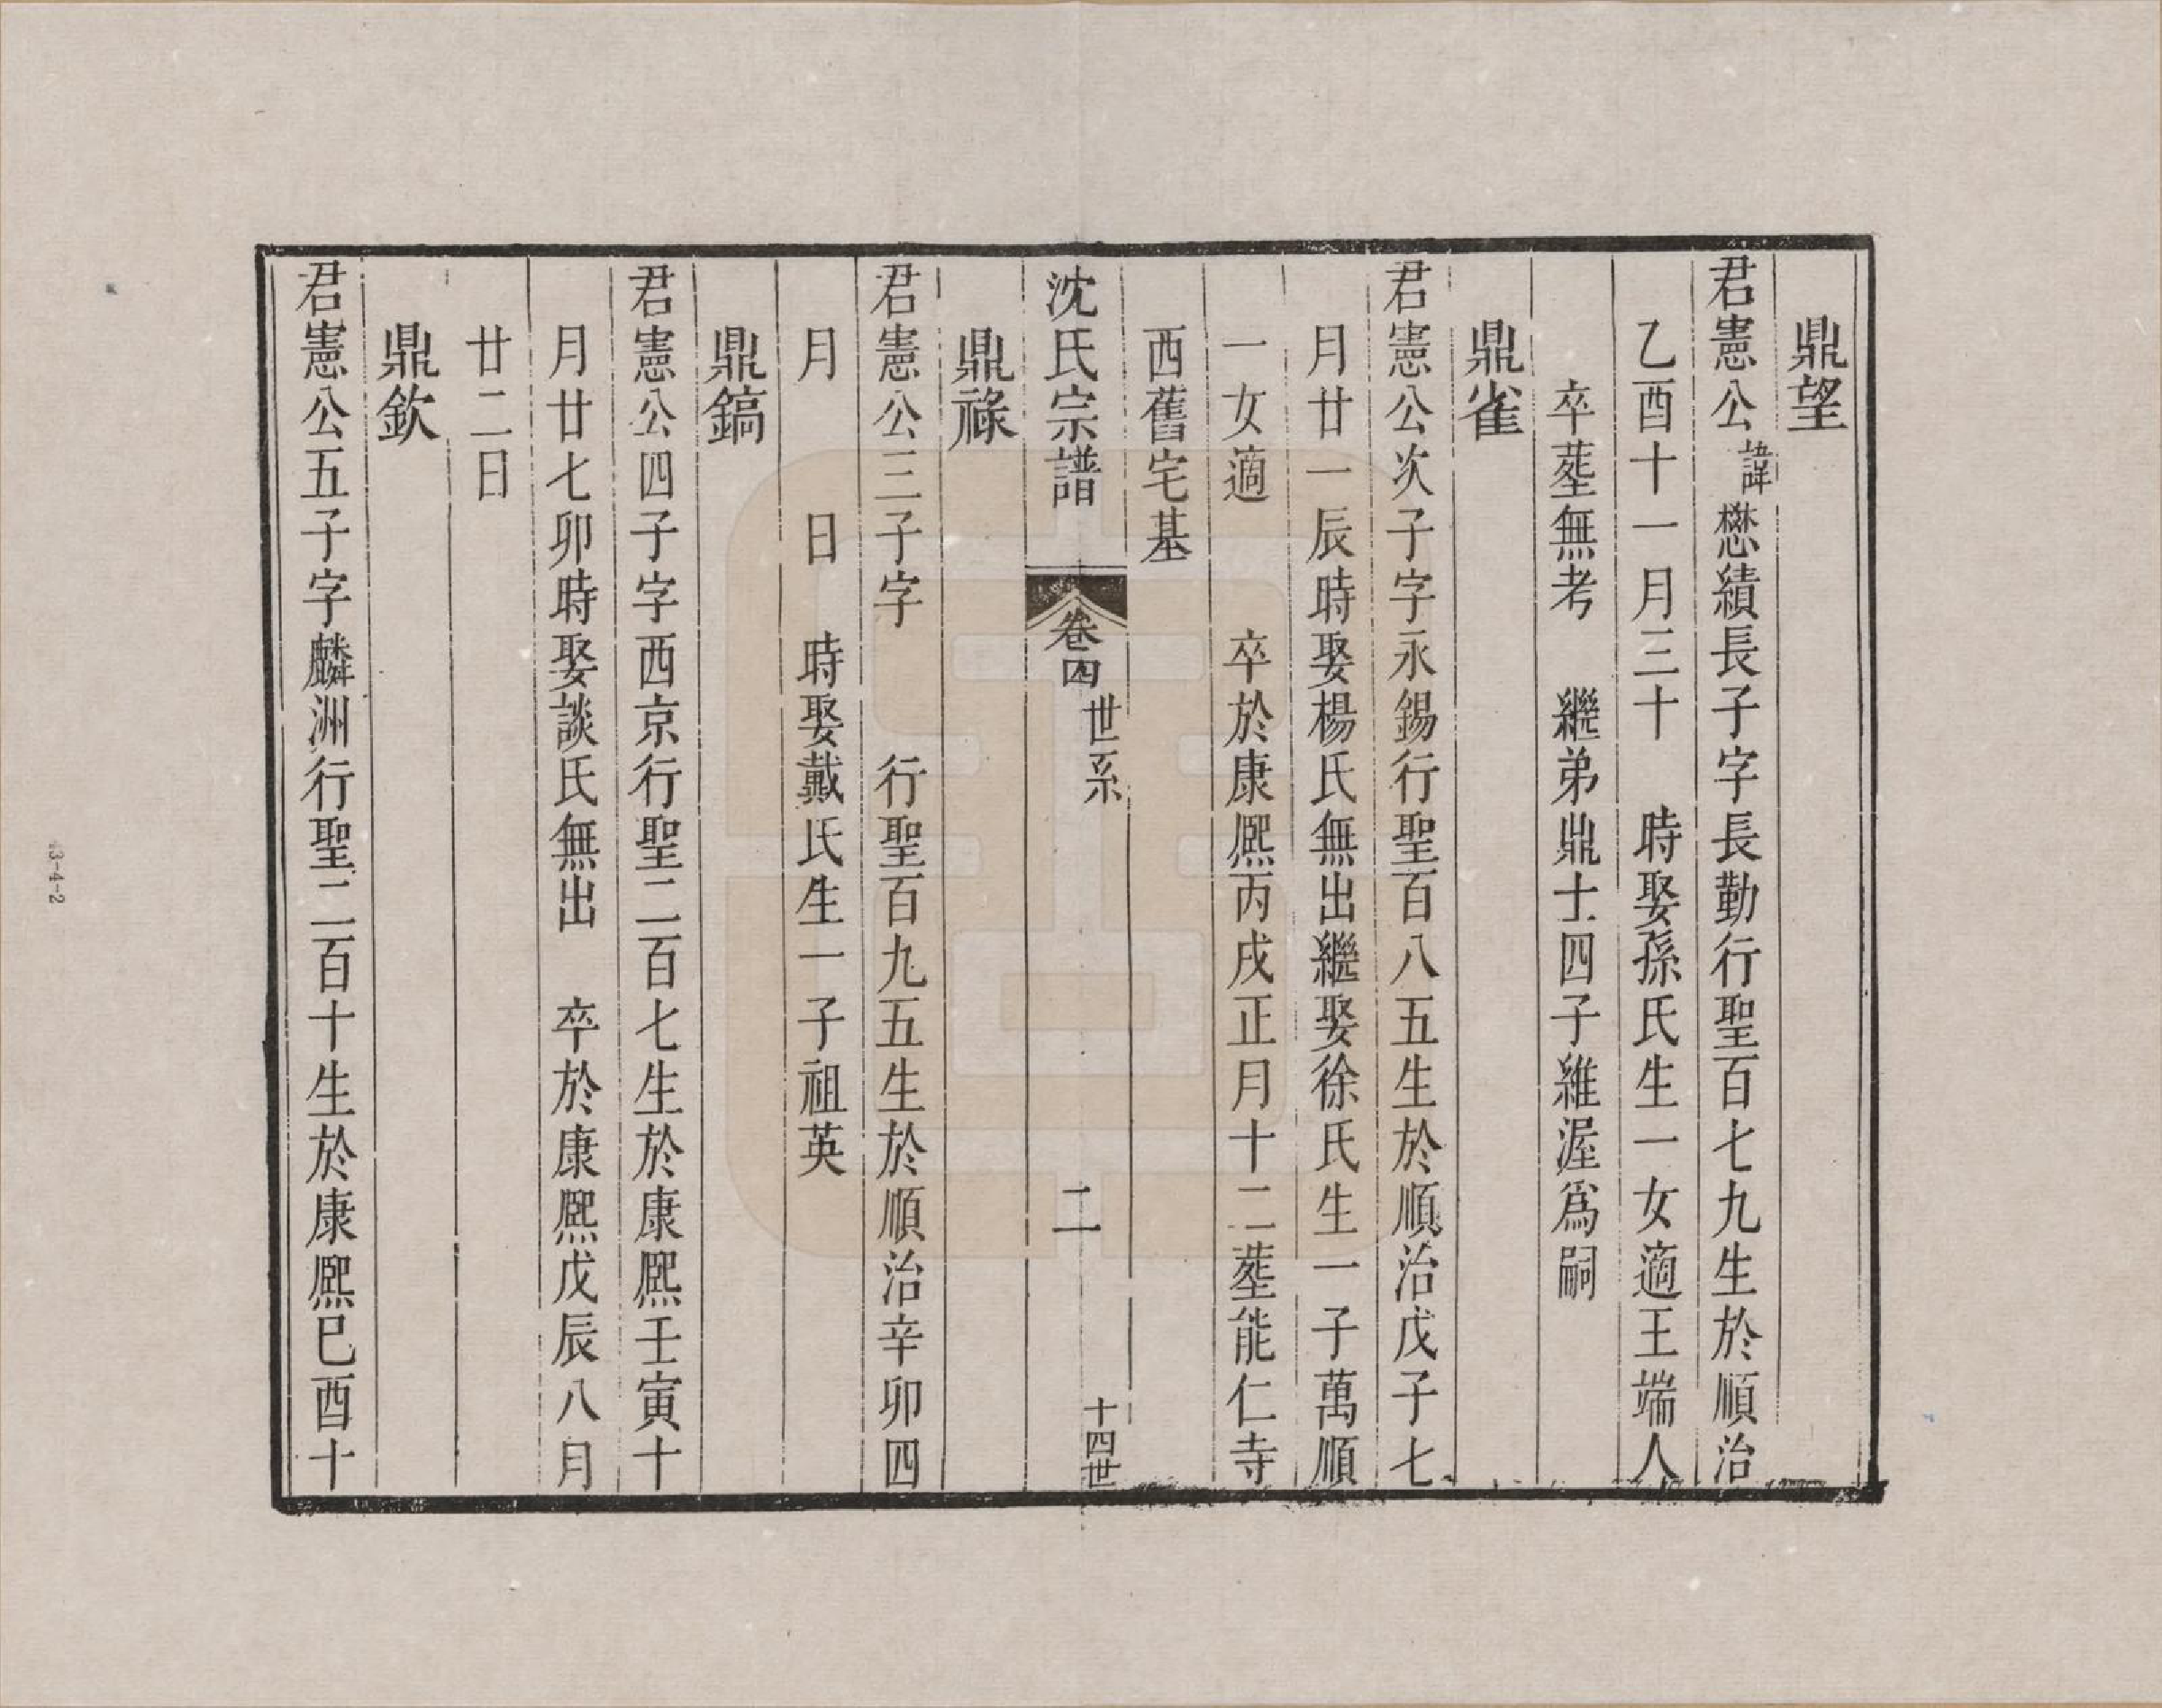 鼎望
君憲公諱懋績長子字長勤行聖百七九生於順治
乙酉十一月三十　時娶孫氏生一女適王端人
卒塟無考　繼弟鼎士四子維渥爲嗣
鼎雀
君憲公次子字永錫行聖百八五生於順治戊子七
月廿一辰時娶楊氏無出繼娶徐氏生一子萬順
一女適　　卒於康熈丙戌正月十二塟能仁寺
西舊宅基
沈氏宗譜　卷四　世系　二　十四世
鼎祿
君憲公三子字　　行聖百九五生於順治辛卯四
月　　日　時娶戴氏生一子祖英
鼎鎬
君憲公四子字西京行聖二百七生於康熈壬寅十
月廿七卯時娶談氏無出　卒於康熈戊辰八月
廿二日
鼎欽
君憲公五子字麟洲行聖二百十生於康熈巳酉十
3-4-2